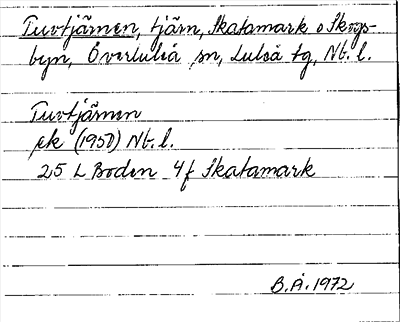 Tuvtjärnen, tjärn, Skatamark o Skogs-
byn, Överluleå sn, Luleå tg, Nt. l.
Tuvtjärnen
ek (1950) Nt. l.
25 L Boden 4f Skatamark
B.Å. 1972